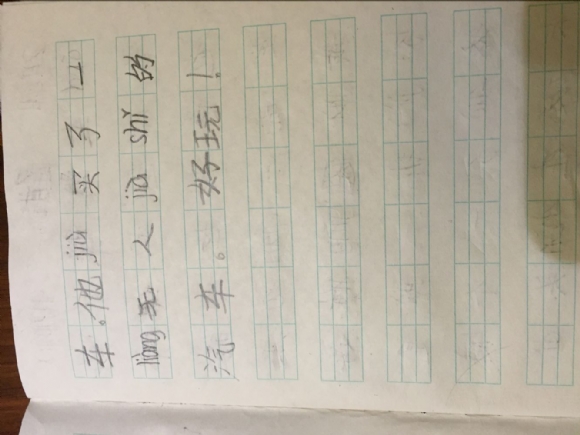 车。他jiù买了一
liàng无人jià shǐ的
汽车。好玩！